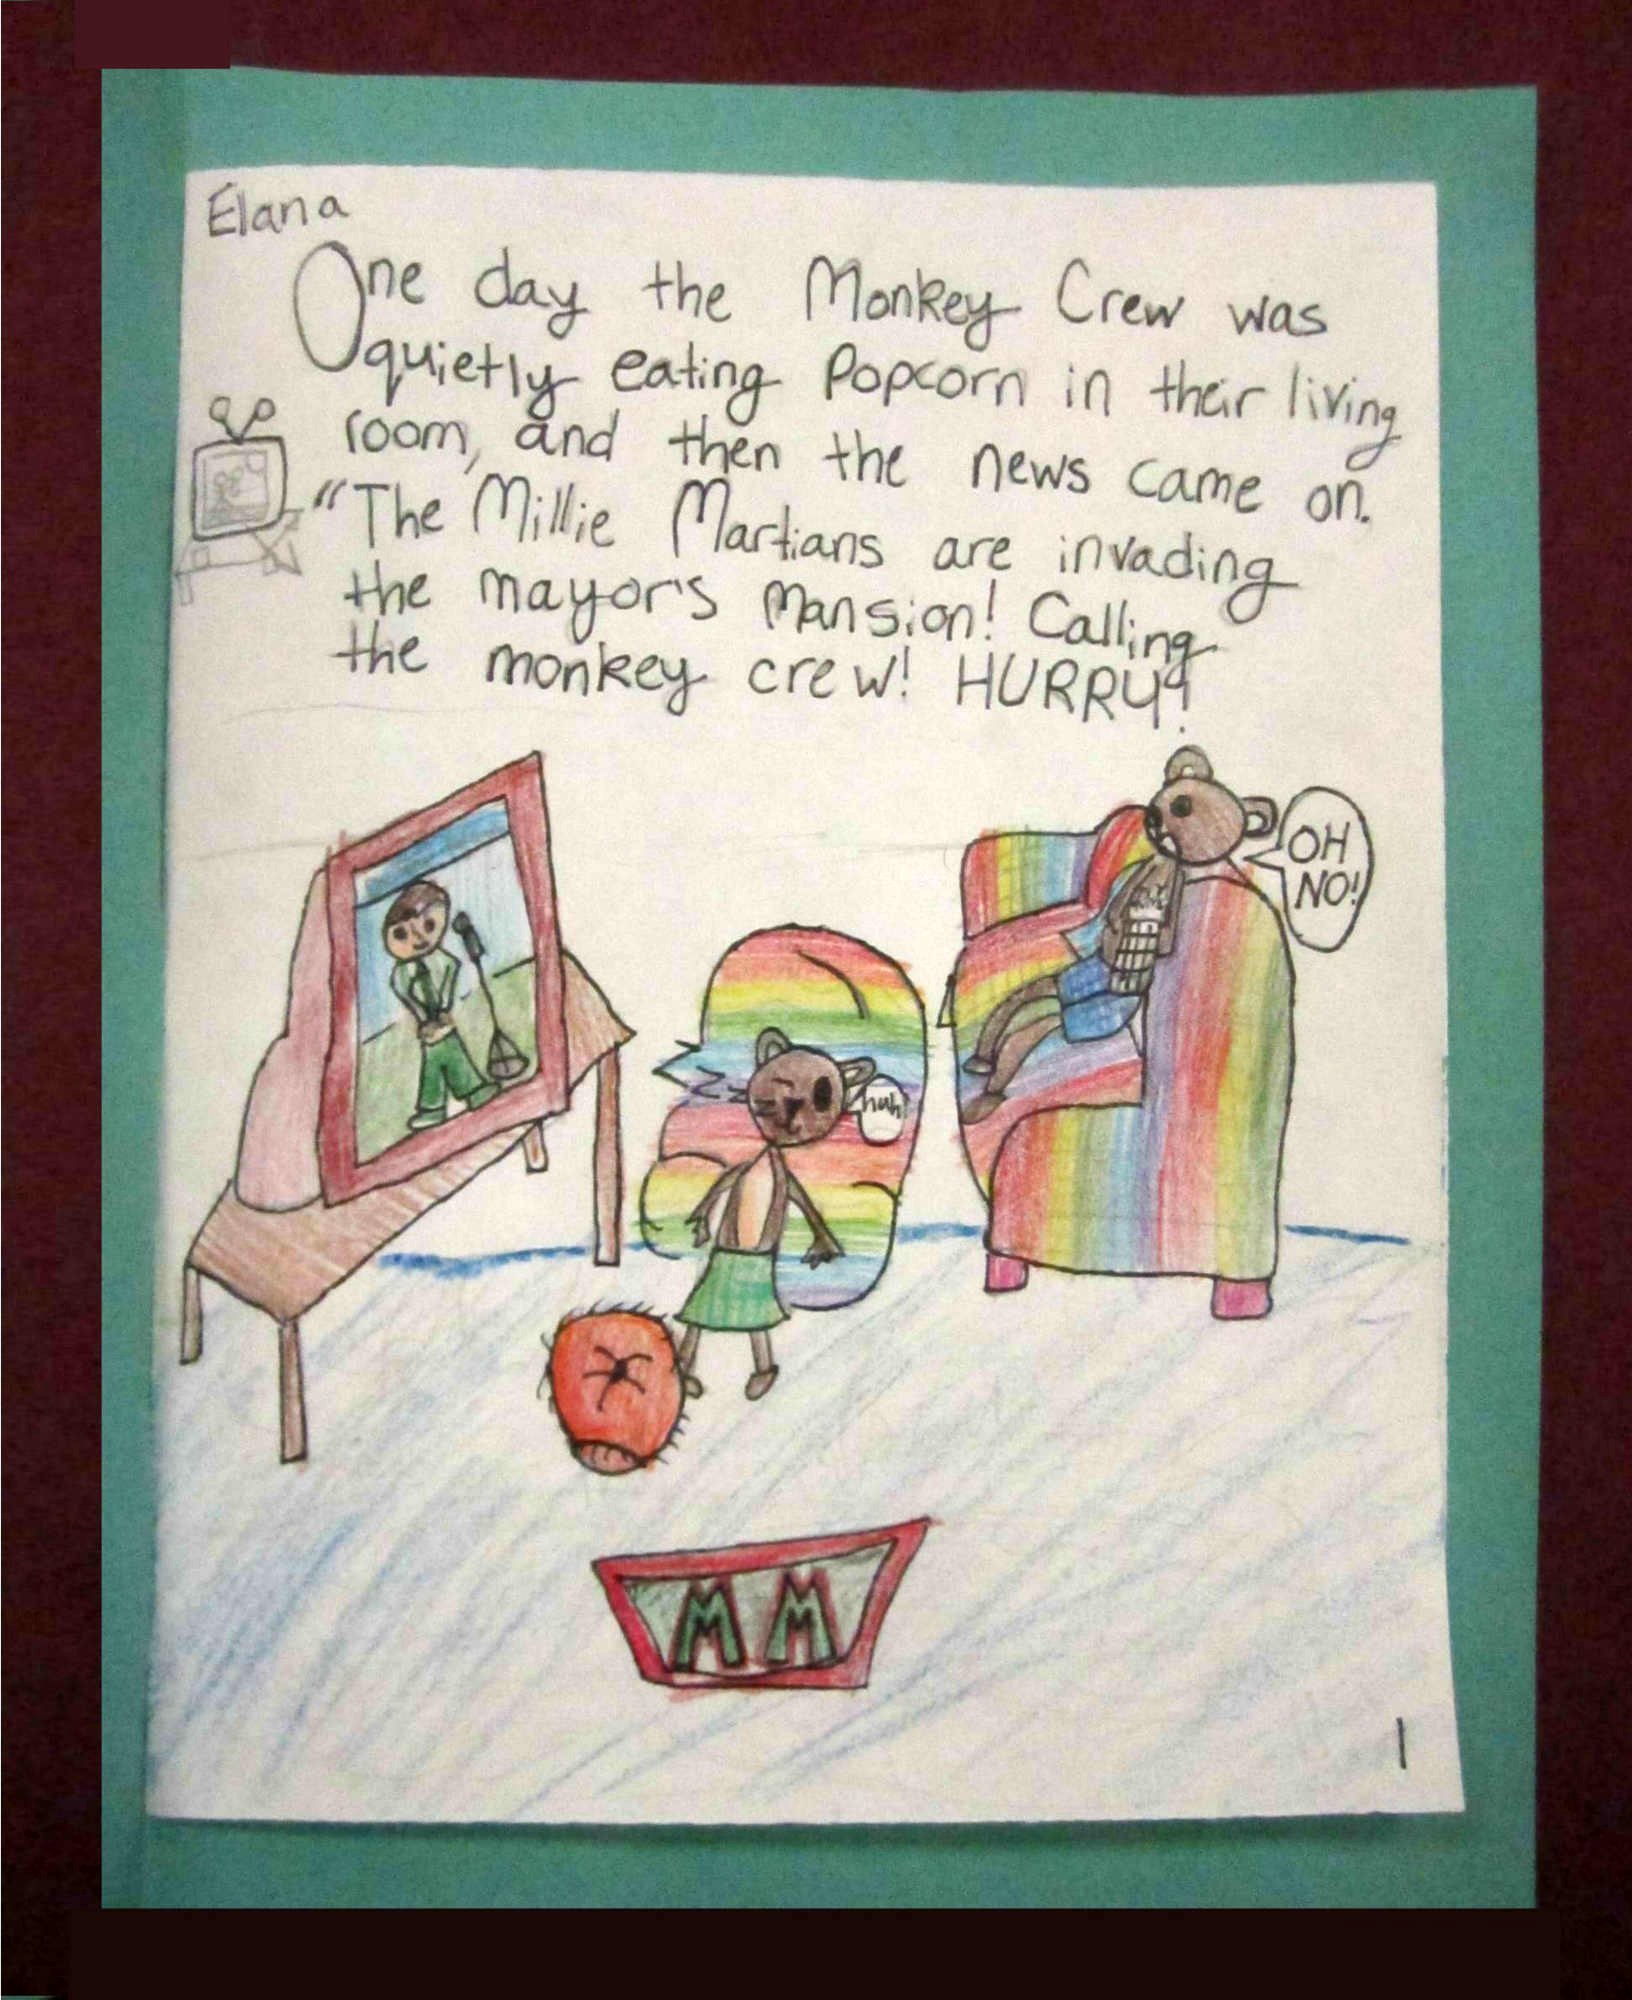 Elana
One day the Monkey Crew was
quietly eating Popcorn in their living
room, and then the news came on.
"The Millie Martians are invading
the mayor's Mansion! Calling
the monkey crew! HURRY!
OH
NO!
huh
MM
1